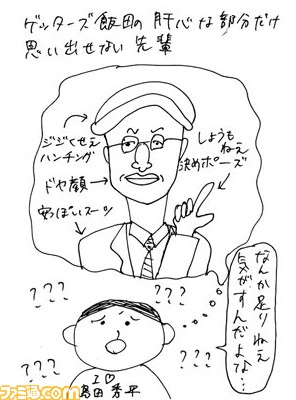 ゲッターズ飯田の肝心な部分だけ
思い出せない先輩
ジジくせえ
ハンチング
ドヤ顔
安っぽいスーツ
しょうも
ねえ
決めポーズ
なんか足りねえ
気がすんだよな…
???
???
???
???
???
I♡
島田秀平
ファミ通.com